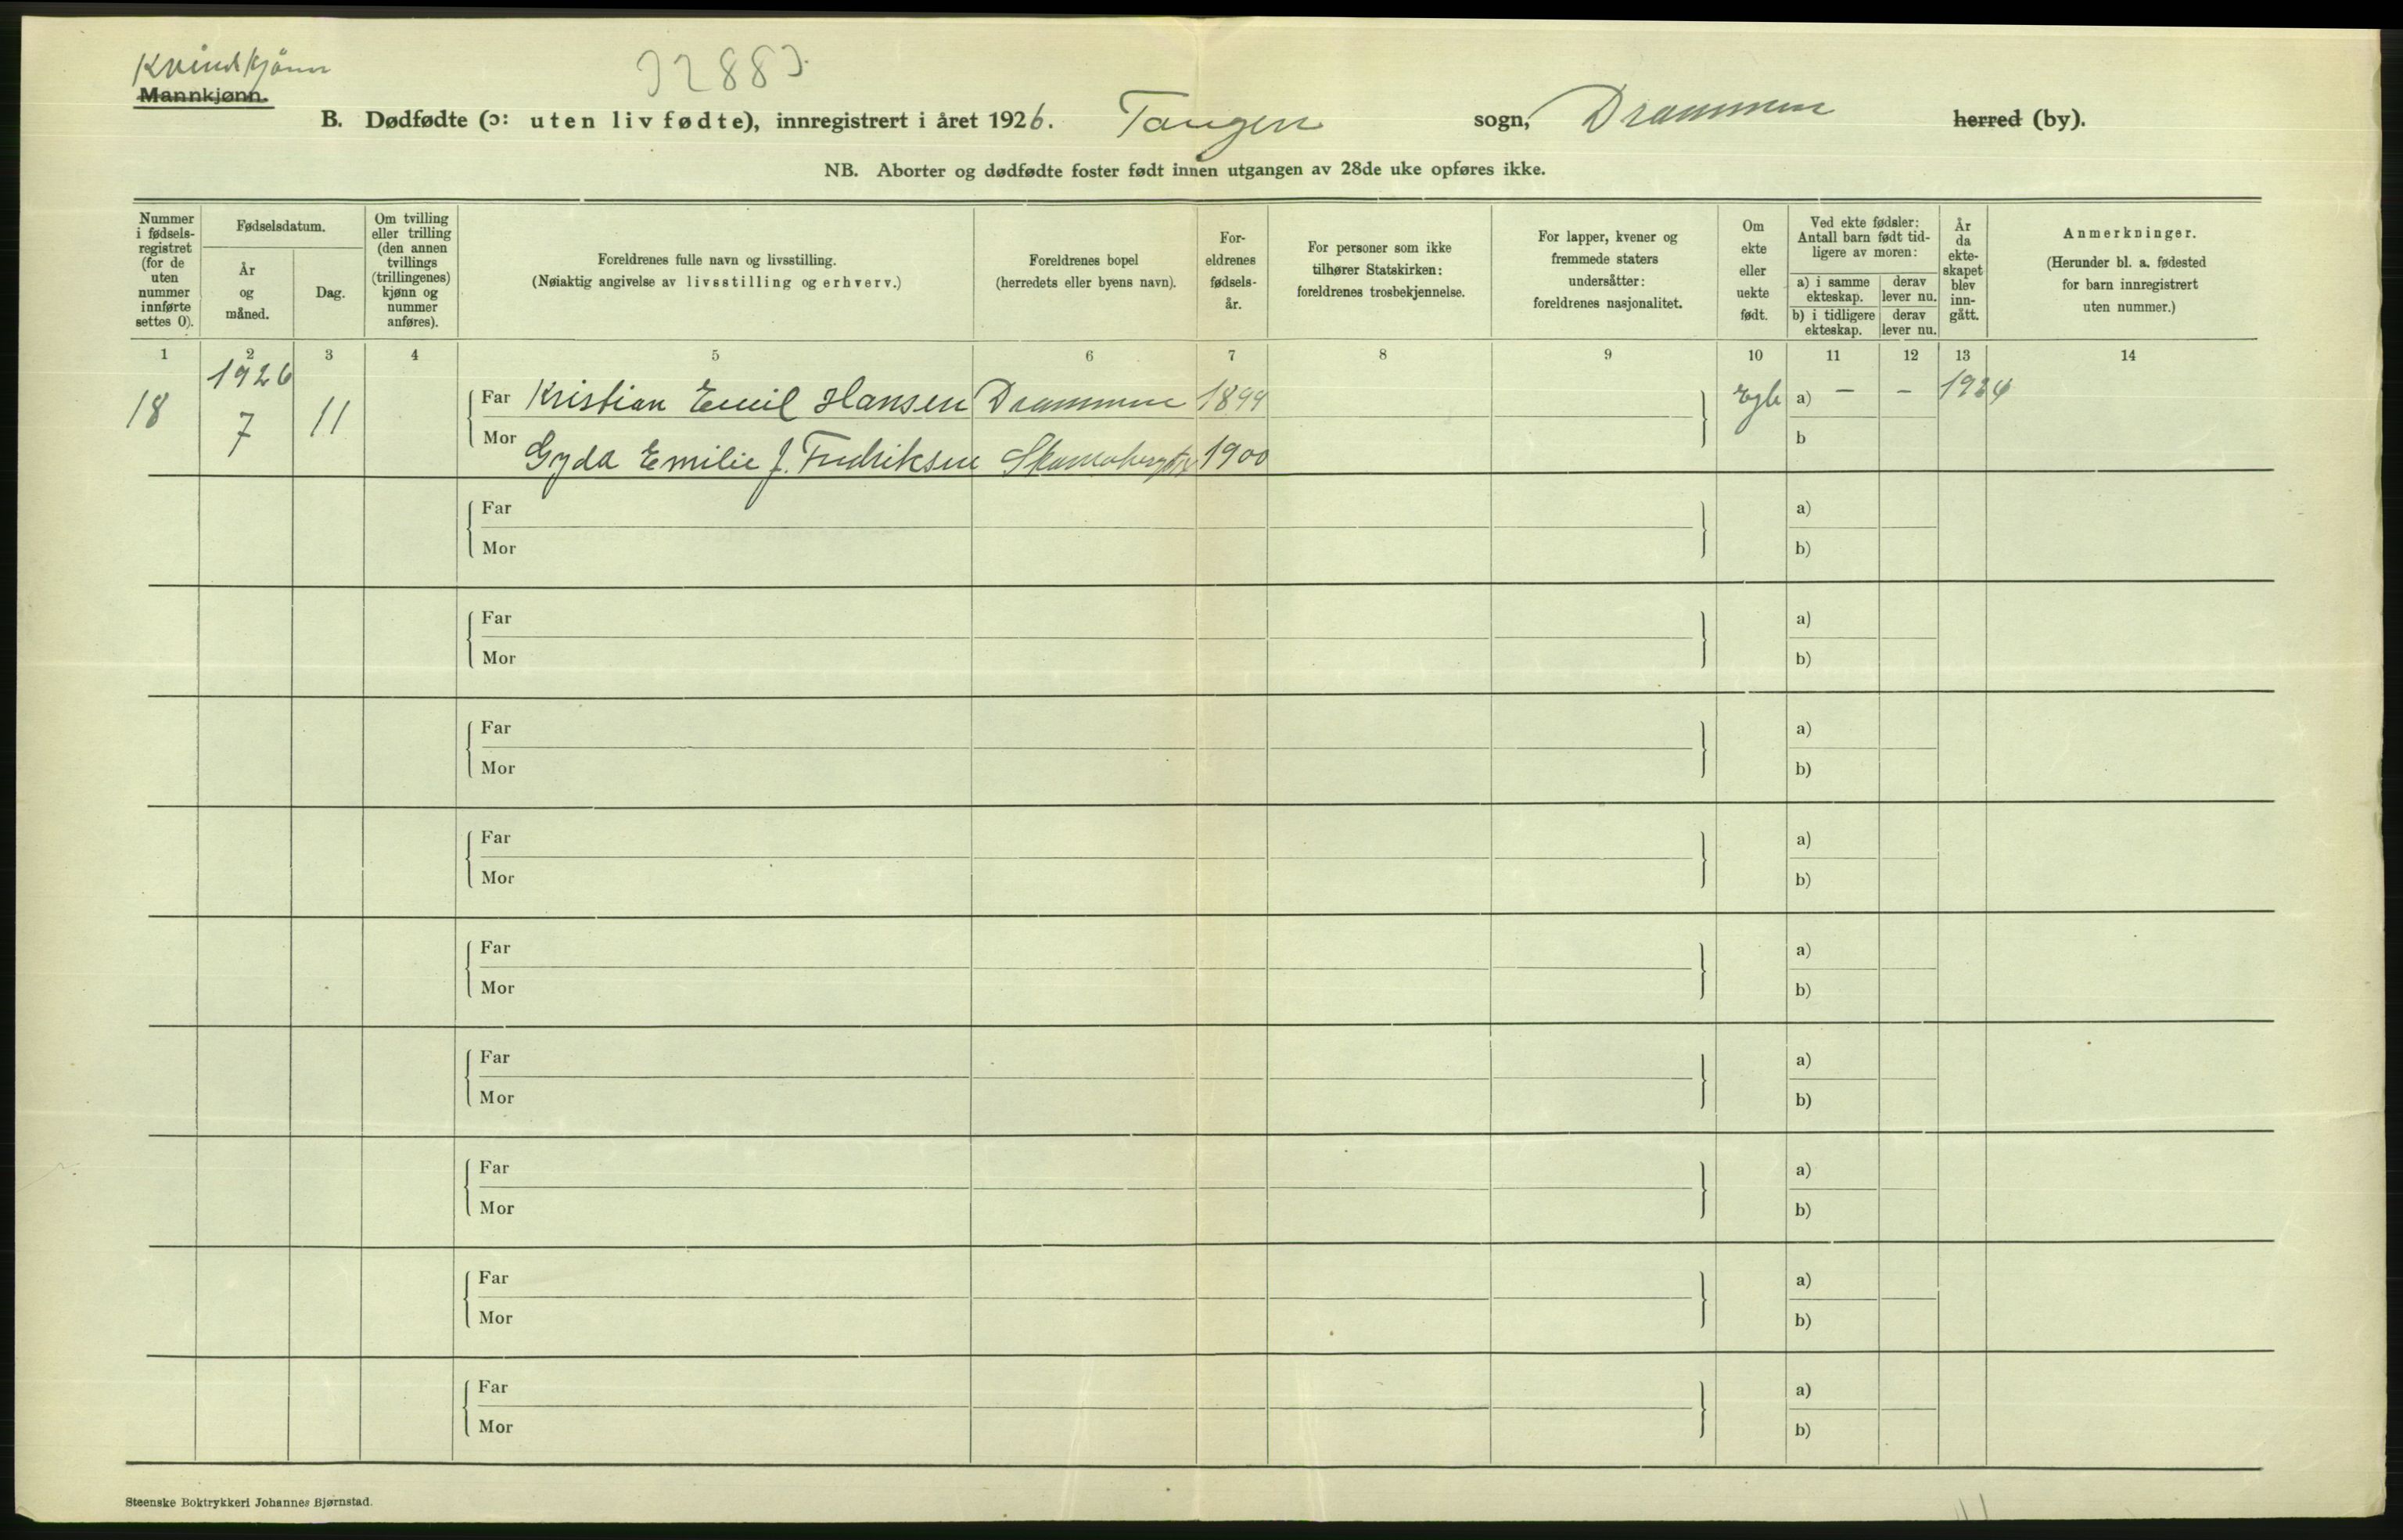 Kvindkjønn
Mannkjønn.
B. Dødfødte (ɔ: uten liv fødte), innregistrert i året 1926. Tangen sogn, Drammen herred (by).
NB. Aborter og dødfødte foster født innen utgangen av 28de uke opføres ikke.
Nummer i fødselsregistret (for de uten nummer innførte settes 0).
Fødselsdatum.
År og måned.
Dag.
Om tvilling eller trilling (den annen tvillings (trillingenes) kjønn og nummer anføres).
Foreldrenes fulle navn og livsstilling.
(Nøiaktig angivelse av livsstilling og erhverv.)
Foreldrenes bopel
(herredets eller byens navn).
Foreldrenes fødselsår.
For personer som ikke tilhører Statskirken: foreldrenes trosbekjennelse.
For lapper, kvener og fremmede staters undersåtter: foreldrenes nasjonalitet.
Om ekte eller uekte født.
Ved ekte fødsler: Antall barn født tidligere av moren:
a) i samme ekteskap.
derav lever nu.
b) i tidligere ekteskap.
derav lever nu.
År da ekteskapet blev inngått.
Anmerkninger.
(Herunder bl. a. fødested for barn innregistrert uten nummer.)
1 2 3 4 5 6 7 8 9 10 11 12 13 14
1926
18 7 11 Far Kristian Emil Hansen Drammen 1899 a) – – 1924
Mor Gyda Emilie f. Fredriksen 1900 b
Far a)
Mor b)
Far a)
Mor b)
Far a)
Mor b)
Far a)
Mor b)
Far a)
Mor b)
Far a)
Mor b)
Far a)
Mor b)
Far a)
Mor b)
Far a)
Mor b)
Steenske Boktrykkeri Johannes Bjørnstad.